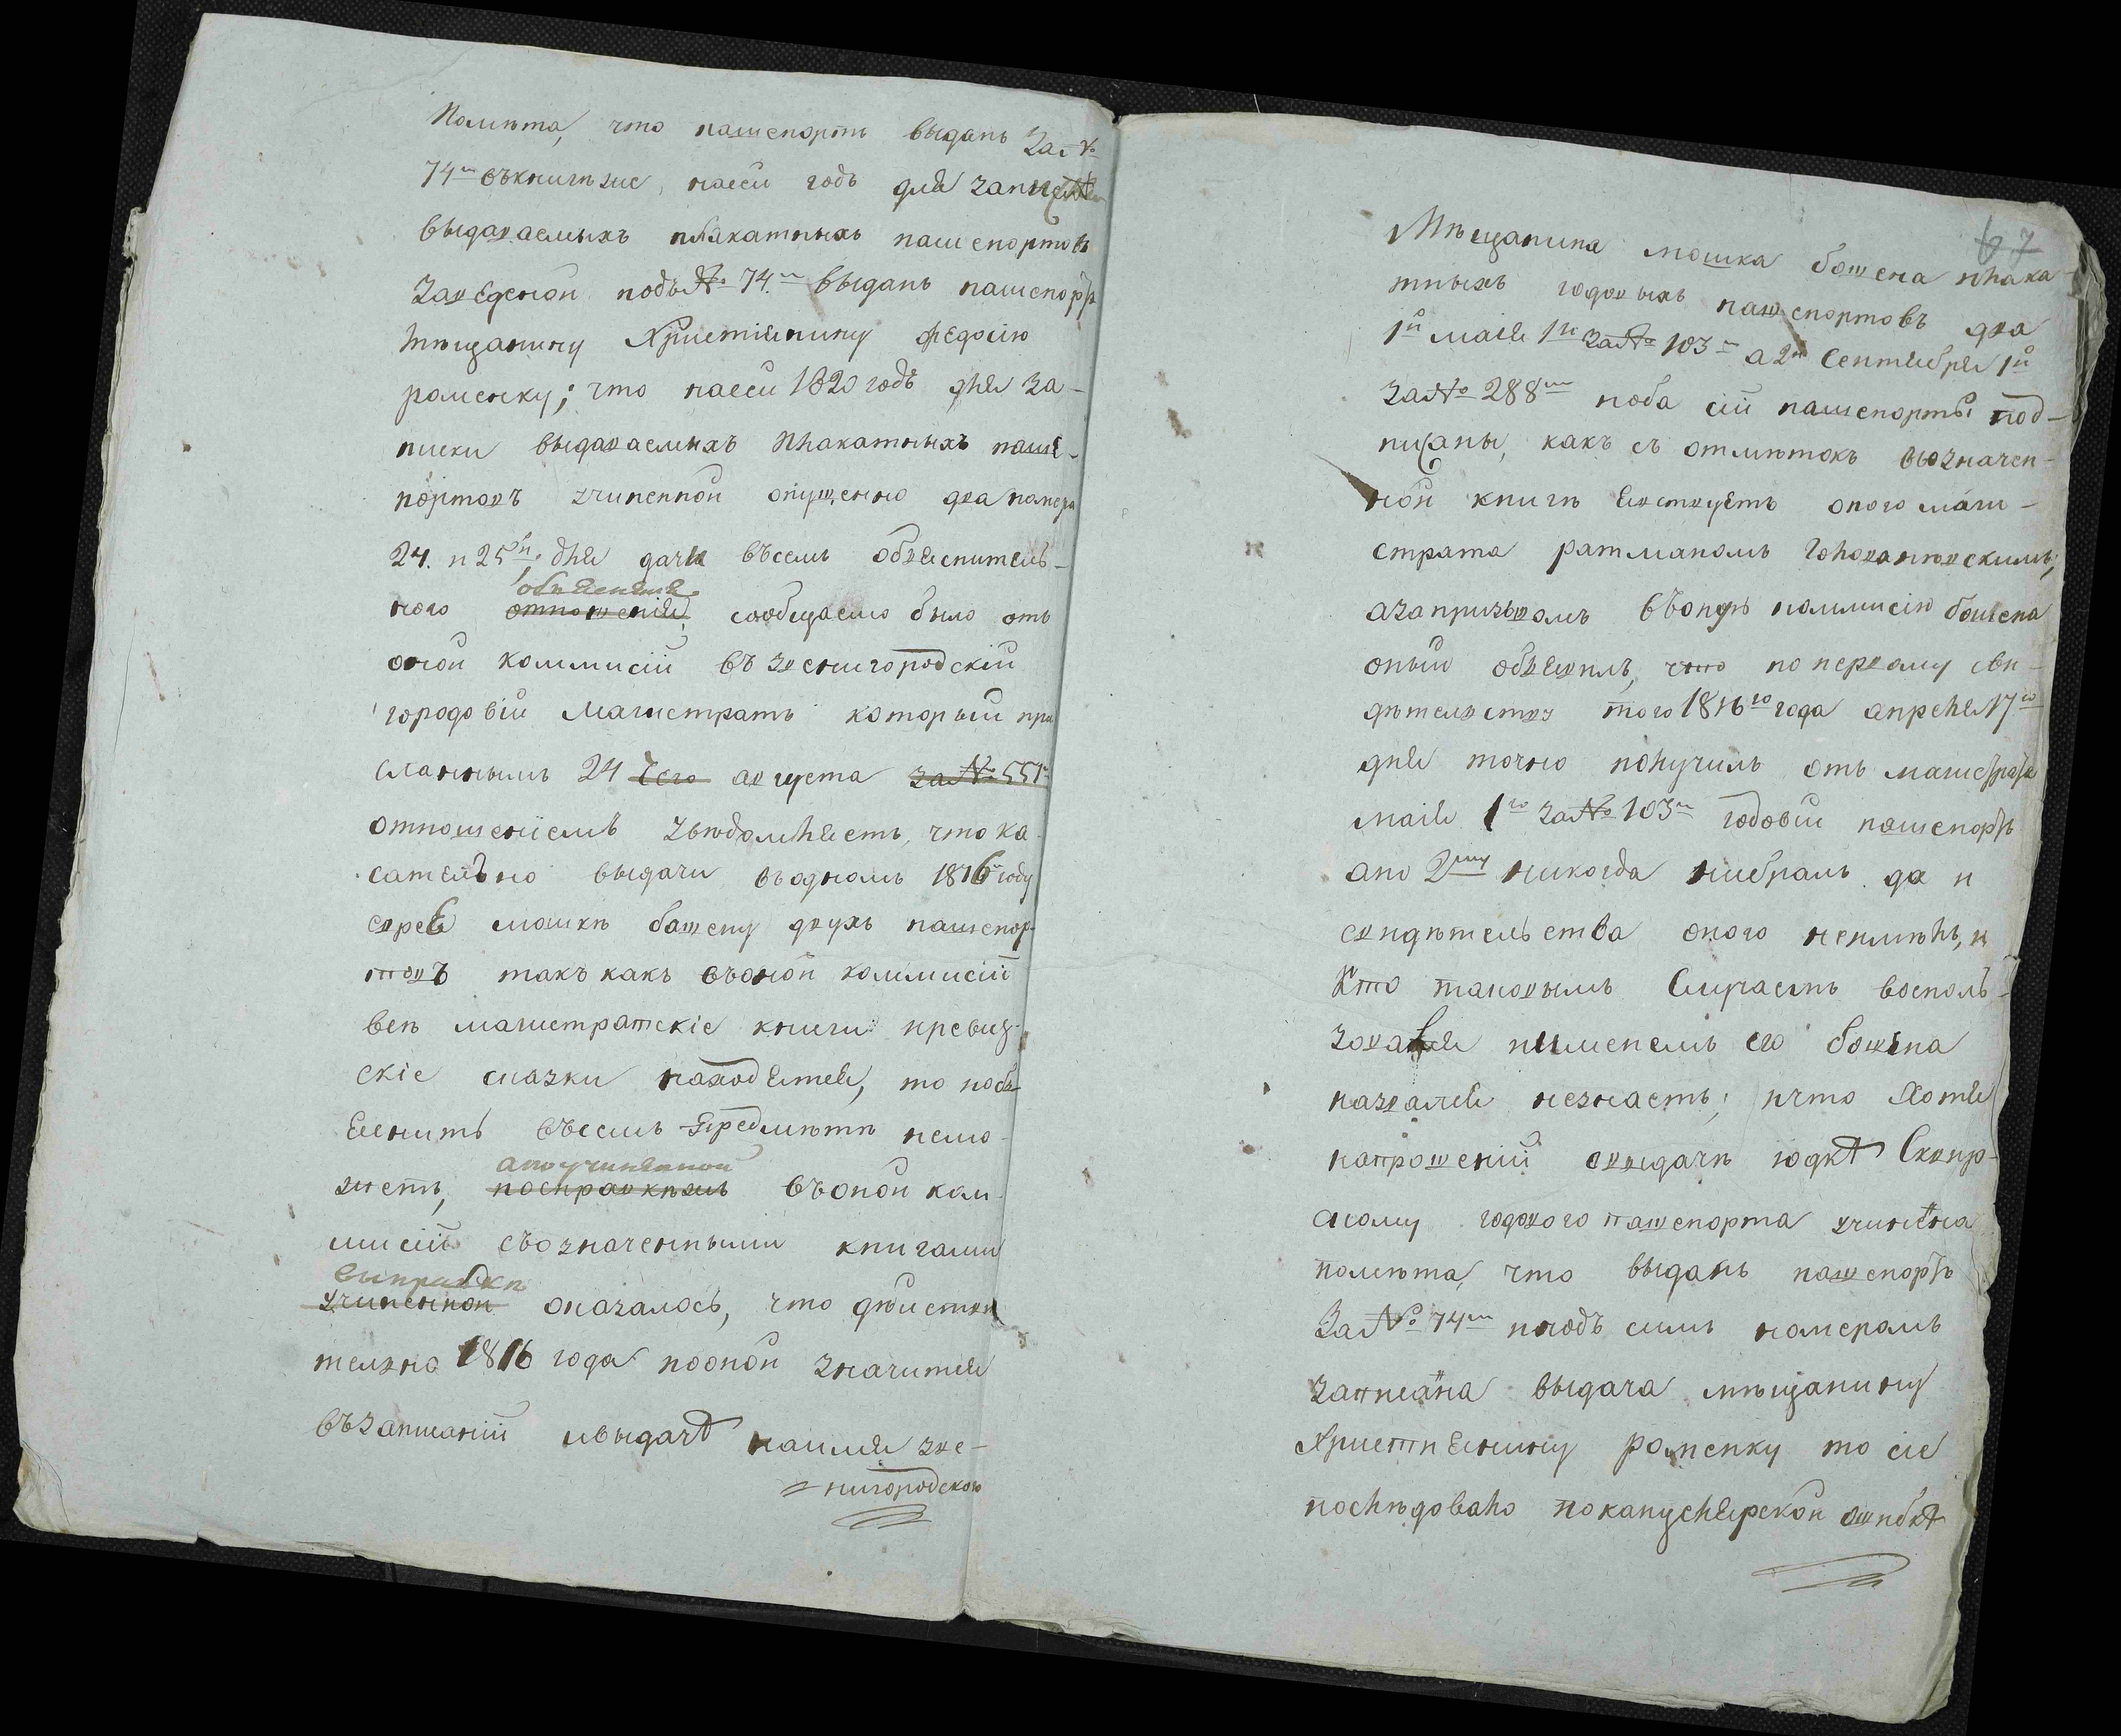 Помѣта, что пашепортъ выданъ За №
74м въкнигѣже, насеи годъ для записки
выдаваемыхъ плакатныхъ пашепортовъ
Заведенои подъ № 74.м выданъ пашепортъ
мѣщанину Христіянину Федосію
роменку; что насеи 1820 годъ для за-
писки выдаваемыхъ плакатныхъ паше-
портовъ учиненной опущенно два номера
24. и 25й, для дачи въсемъ объяснитель-
ного отношенія объясненія сообщаемо было отъ
оной коммисіи въ звенигородскій
городовіи Магистратъ которыи при
сланнымъ 24 сего августа за № 551м
отношеніемъ увѣдомляетъ, что ка-
сательно выдачи въодномъ 1816м году
еврею мошкѣ башену двухъ пашепор-
товъ такъ какъ въоной коммисіи
всѣ магистратскіе книги иревиз-
скіе сказки находятся, то нобъ-
яснить въсемъ предмѣтѣ немо-
жетъ, посправкамъ апоучиненной въоной ком-
мисіи съозначенными книгами
учиненнои справки оказалось, что дѣистви
тельно 1816 года пооной значится
възаписаніи ивыдачѣ наимя зве-
нигородского
67
Мѣщанина мошка башена плака-
тныхъ годовыхъ пашепортовъ два
1й маія 1го за № 103м а 2й Сентября 1й
За № 288м иоба сіи пашепорты под-
писаны, какъ съ отмѣтокъ вюзначен-
нои книгѣ явствуетъ оного маги-
страта ратманомъ Головатовскимъ;
азапризывомъ въоную коммисію башена
оныи объявилъ, что по первому сви-
дѣтельству того 1816го года апреля 17го
дня точно получилъ отъ магистрата
маія 1го за № 103м годовіи пашепортъ
апо 2му никогда нибралъ да и
свидѣтельства оного неимѣлъ, и
Кто таковымъ Случаемъ восполь-
зовался иименемъ его башена
назвался незнаетъ; ичто Хотя
напрошеніи овыдачѣ юдкѣ Сквир-
скому годового пашепорта учинена
помѣта, что выданъ пашепортъ
За № 74м иподъ симъ номеромъ
записана выдача мѣщанину
Христіянину роменку то сіе
послѣдовало поканцеслярской ошибкѣ